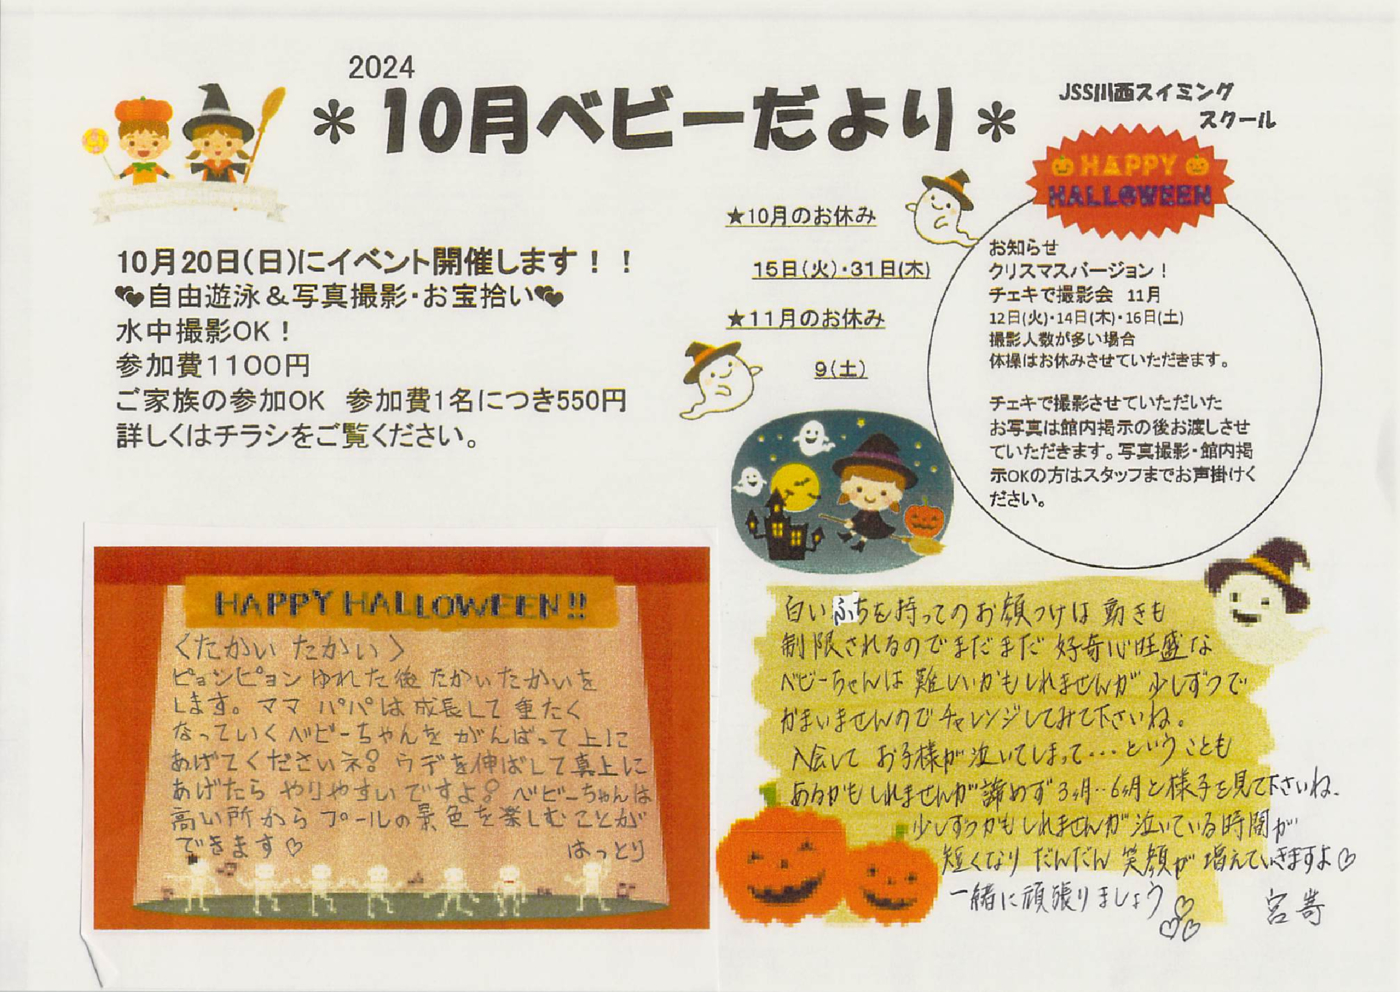 2024
＊10月ベビーだより＊
JSS川西スイミング
スクール
HAPPY
HALLOWEEN
10月20日(日)にイベント開催します！！
自由遊泳＆写真撮影・お宝拾い
水中撮影OK！
参加費1100円
ご家族の参加OK　参加費1名につき550円
詳しくはチラシをご覧ください。
★10月のお休み
15日(火)・31日(木)
★11月のお休み
9(土)
お知らせ
クリスマスバージョン！
チェキで撮影会　11月
12日(火)・14日(木)・16日(土)
撮影人数が多い場合
体操はお休みさせていただきます。
チェキで撮影させていただいた
お写真は館内掲示の後お渡しさせ
ていただきます。写真撮影・館内掲
示OKの方はスタッフまでお声掛けく
ださい。
HAPPY HALLOWEEN!!
〈たかい たかい〉
ピョンピョン ゆれた後 たかいたかいを
します。ママ パパは 成長して 重たく
なっていくベビーちゃんを がんばって 上に
あげてくださいネ♪ ウデを伸ばして真上に
あげたら やりやすいですよ♪ ベビーちゃんは
高い所から プールの景色を楽しむことが
できます♡
はっとり
白いふちを持ってのお顔つけは 動きも
制限されるのでまだまだ 好奇心旺盛な
ベビーちゃんは 難しいかもしれませんが 少しずつで
かまいませんのでチャレンジしてみて下さいね。
入会して お子様が泣いてしまって…ということも
あるかもしれませんが諦めず3ヶ月‥6ヶ月と様子を見て下さいね.
少しずつかもしれませんが 泣いている時間が
短くなり だんだん 笑顔が 増えていきますよ♡
一緒に頑張りましょう♡♡♡
宮嵜